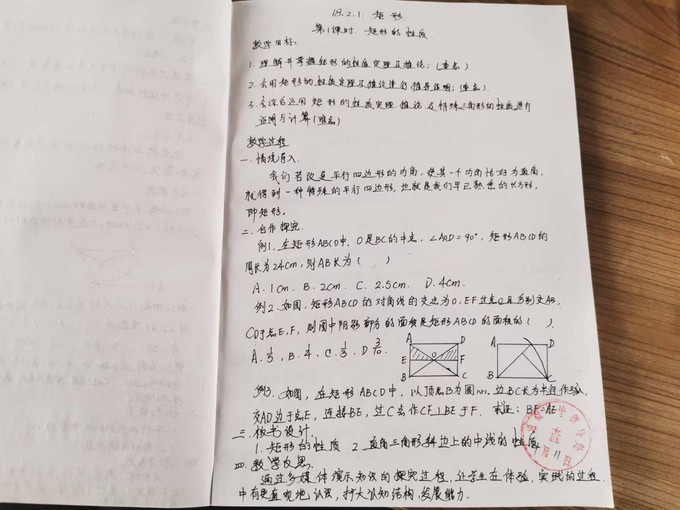 18.2.1. 矩形
第1课时. 矩形的性质
教学目标:
1. 理解并掌握矩形的性质定理及推论;(重点)
2. 会用矩形的性质定理及推论进行推导证明;(重点)
3. 会综合运用矩形的性质定理、推论及特殊三角形的性质进行
证明与计算(难点)
教学过程
一. 情境导入
我们若改变平行四边形的内角, 使其一个内角恰好为直角,
就得到一种特殊的平行四边形, 也就是我们早已熟悉的长方形,
即矩形.
二. 合作探究.
例1. 在矩形ABCD中, O是BC的中点, ∠AOD=90°, 矩形ABCD的
周长为24cm, 则AB长为( )
A. 1cm. B. 2cm C. 2.5cm. D. 4cm.
例2. 如图, 矩形ABCD的对角线的交点为O, EF过点O且分别交AB、
CD于点E, F, 则图中阴影部分的面积是矩形ABCD的面积的( ).
A. 1/5, B. 1/4, C. 1/3. D. 3/10.
A D E F O B C
A D B C
例3. 如图, 在矩形ABCD中, 以顶点B为圆心、边BC长为半径作弧,
交AD边于点E, 连接BE, 过C点作CF⊥BE于F. 求证: BF=AE
三. 板书设计.
1. 矩形的性质 2. 直角三角形斜边上的中线的性质
四. 教学反思.
通过多媒体演示知识的探究过程, 让学生在体验、实践的过程
中有更直观地认识, 扩大认知结构, 发展能力.